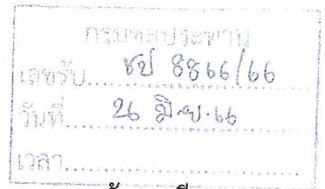 กรมชลประทาน
เลขรับ ชป 8866/66
วันที่ 26 มิ.ย. 66
เวลา